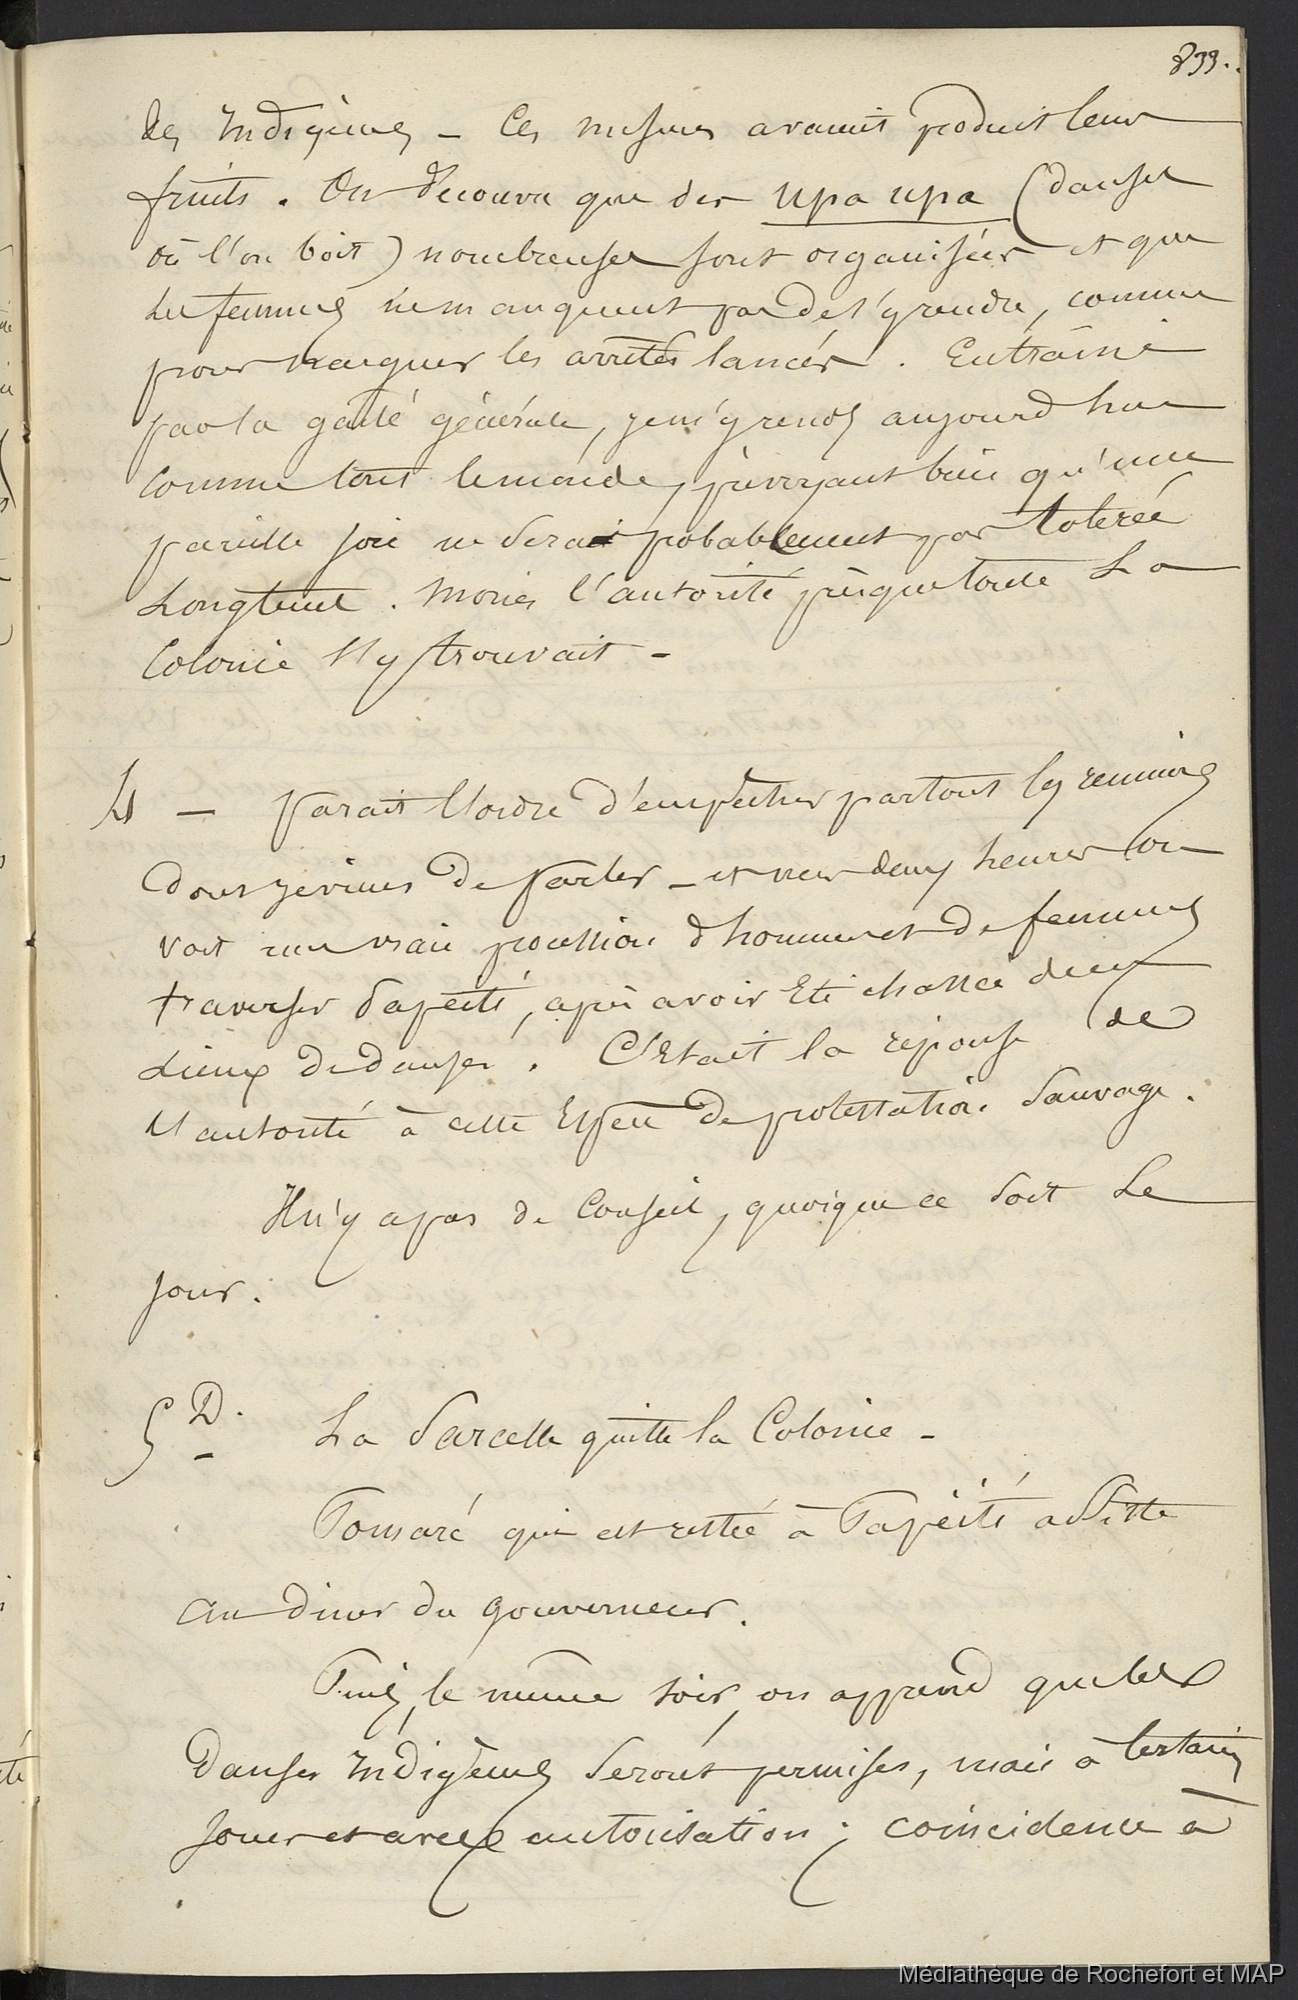 833.
des Indigènes - Ces mesures avaient produit leurs
fruits. On découvre que des upa upa (danses
où l'on boit) nombreuses sont organisées et que
les femmes ne manquent pas de s'y rendre, comme
pour narguer les arrêtés lancés. Entraîné
par la gaité générale, je m'y rends aujourd'hui
comme tout le monde, prévoyant bien qu'une
pareille joie ne serait probablement pas tolérée
Longtems. Moins l'autorité presque toute La
Colonie s'y trouvait -
4 - Parait l'ordre d'empêcher partout les reunions
dont je viens de parler - et vers deux heures on
voit une vraie procession d'hommes et de femmes
traverser Papeïté, après avoir été chassée des
Lieux de danses. C'était la réponse de
l'autorité à cette Espèce de protestation Sauvage.
Il n'y a pas de Conseil, quoique ce soit Le
jour.
5 D. La Sarcelle quitte la Colonie -
Pomaré qui est restée à Papéïté assiste
au diner du gouverneur.
Puis, le même soir, on apprend que les
Danses Indigènes seront permises, mais à certains
jours et avec autorisation ; coincidence à
Médiathèque de Rochefort et MAP